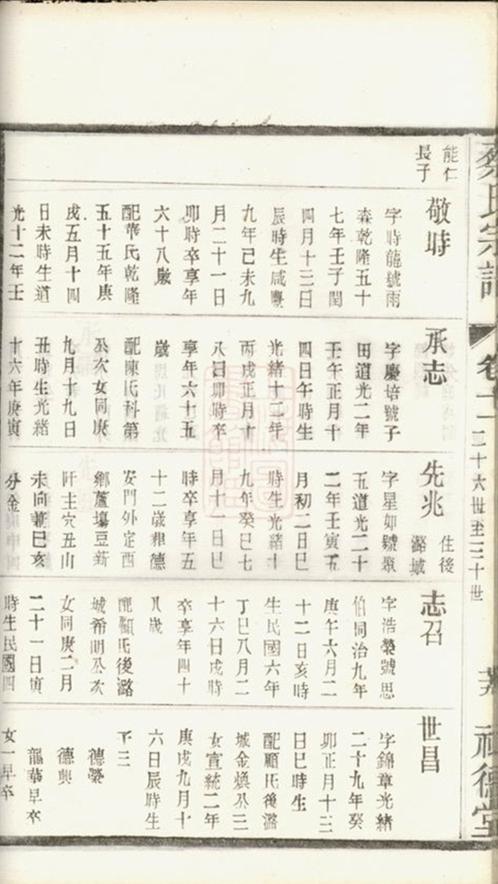 蔡氏宗譜
卷十二
二十六世至三十世
福德堂
能仁
長子
敬時
字時龍號雨
森乾隆五十
七年壬子閏
四月十三日
辰時生咸豐
九年己未九
月二十一日
卯時卒享年
六十八歲
配華氏乾隆
五十五年庚
戌五月十四
日未時生道
光十二年壬
承志
字慶培號子
田道光二年
壬午正月十
四日午時生
光緒十二年
丙戌正月十
八日卯時卒
享年六十五
歲
配陳氏科第
公次女同庚
九月十九日
丑時生光緒
十六年庚寅
先兆
住後
潞城
字星如號景
五道光二十
二年壬寅五
月初二日巳
時生光緒十
九年癸巳七
月十一日巳
時卒享年五
十二歲葬德
安門外定西
鄉蘆塲豆新
阡主穴丑山
未向兼己亥
分金
志召
字浩榮號思
伯同治九年
庚午六月二
十二日亥時
生民國六年
丁巳八月二
十六日戌時
卒享年四十
八歲
配顧氏後潞
城希明公次
女同庚二月
二十一日寅
時生民國四
世昌
字錦章光緒
二十九年癸
卯正月十三
日巳時生
配顧氏後潞
城金煥公三
女宣統二年
庚戌九月十
六日辰時生
子三
德榮
德興
龍華早卒
女一早卒